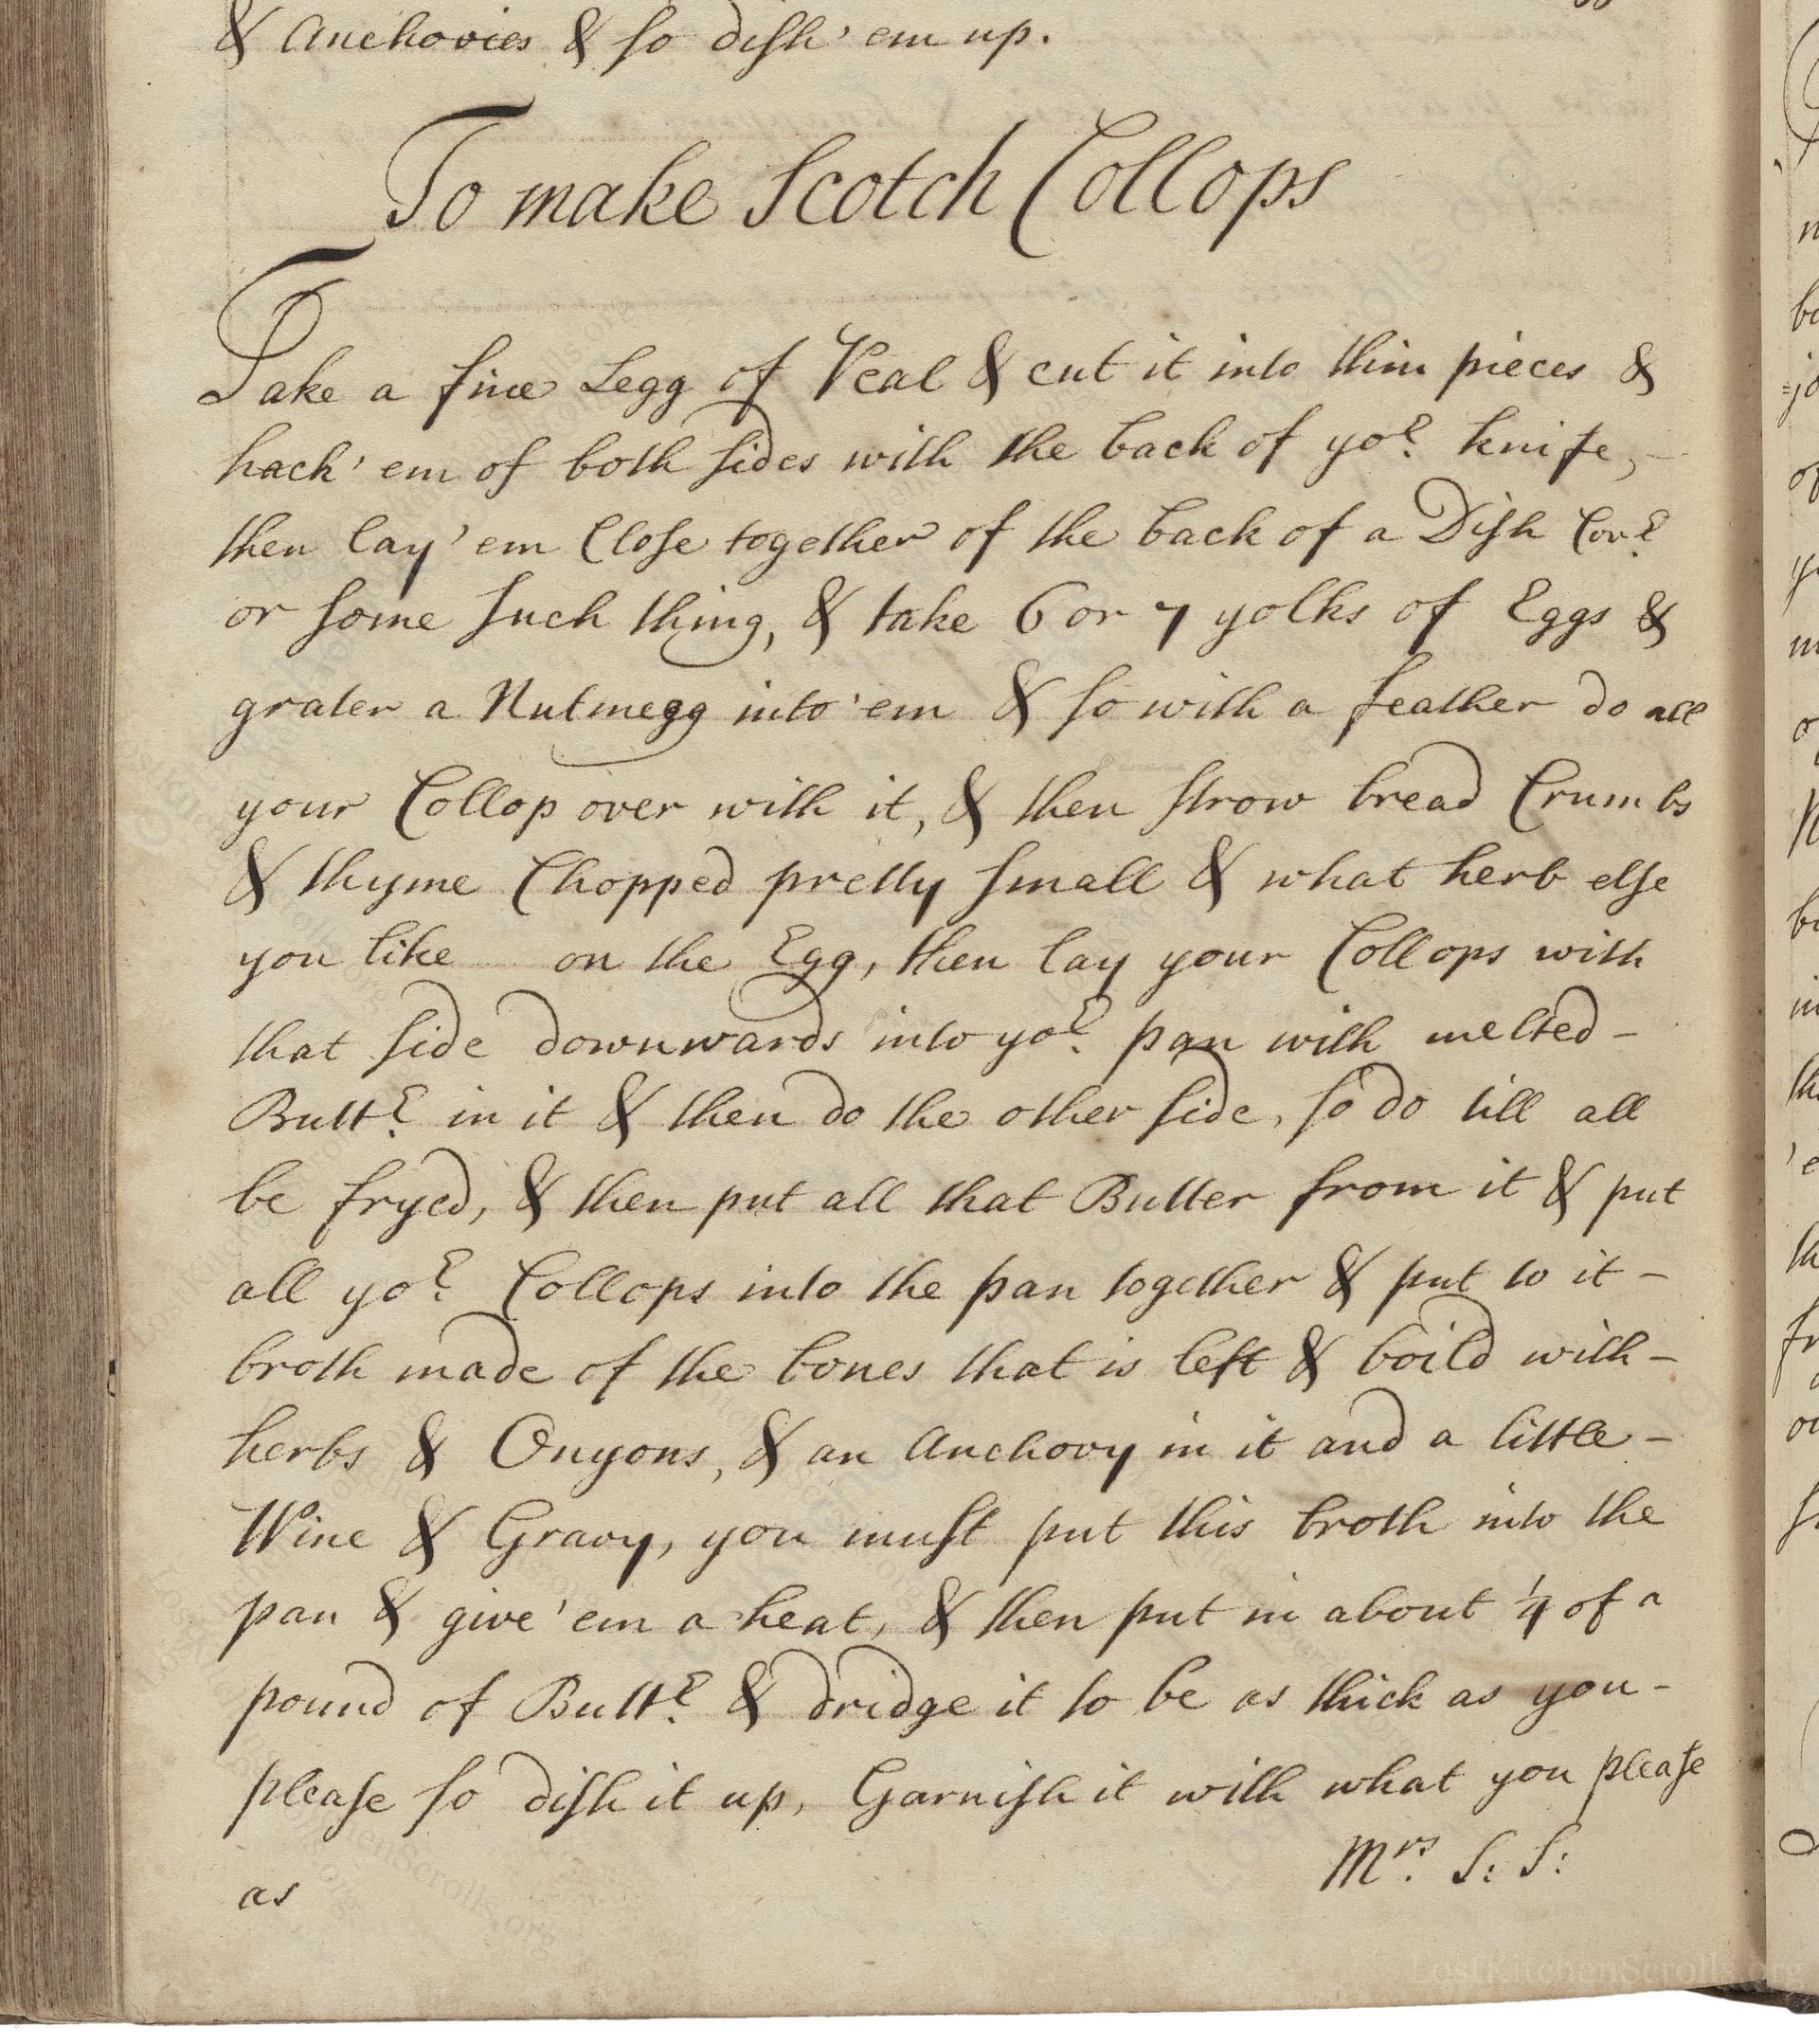 & Anchovies & so dish 'em up.
To make Scotch Collops
Take a fine Legg of Veal & cut it into thin pieces &
hack 'em of both sides with the back of yo.r knife,
then lay 'em Close together of the back of a Dish Cov.r
or some such thing, & take 6 or 7 yolks of Eggs &
grater a Nutmegg into 'em & so with a feather do all
your Collop over with it, & then strow bread Crumbs
& thyme Chopped pretty small & what herb else
you like on the Egg, then lay your Collops with
that side downwards into yo.r pan with melted -
Butt.r in it & then do the other side, so do till all
be fryed, & then put all that Butter from it & put
all yo.r Collops into the pan together & put to it -
broth made of the bones that is left & boild with -
herbs & Onyons, & an Anchovy in it and a little -
Wine & Gravy, you must put this broth into the
pan & give 'em a heat, & then put in about ¼ of a
pound of Butt.r & dridge it to be as thick as you -
please so dish it up, Garnish it with what you please
M.rs S: S:
as
LostKitchenScrolls.org